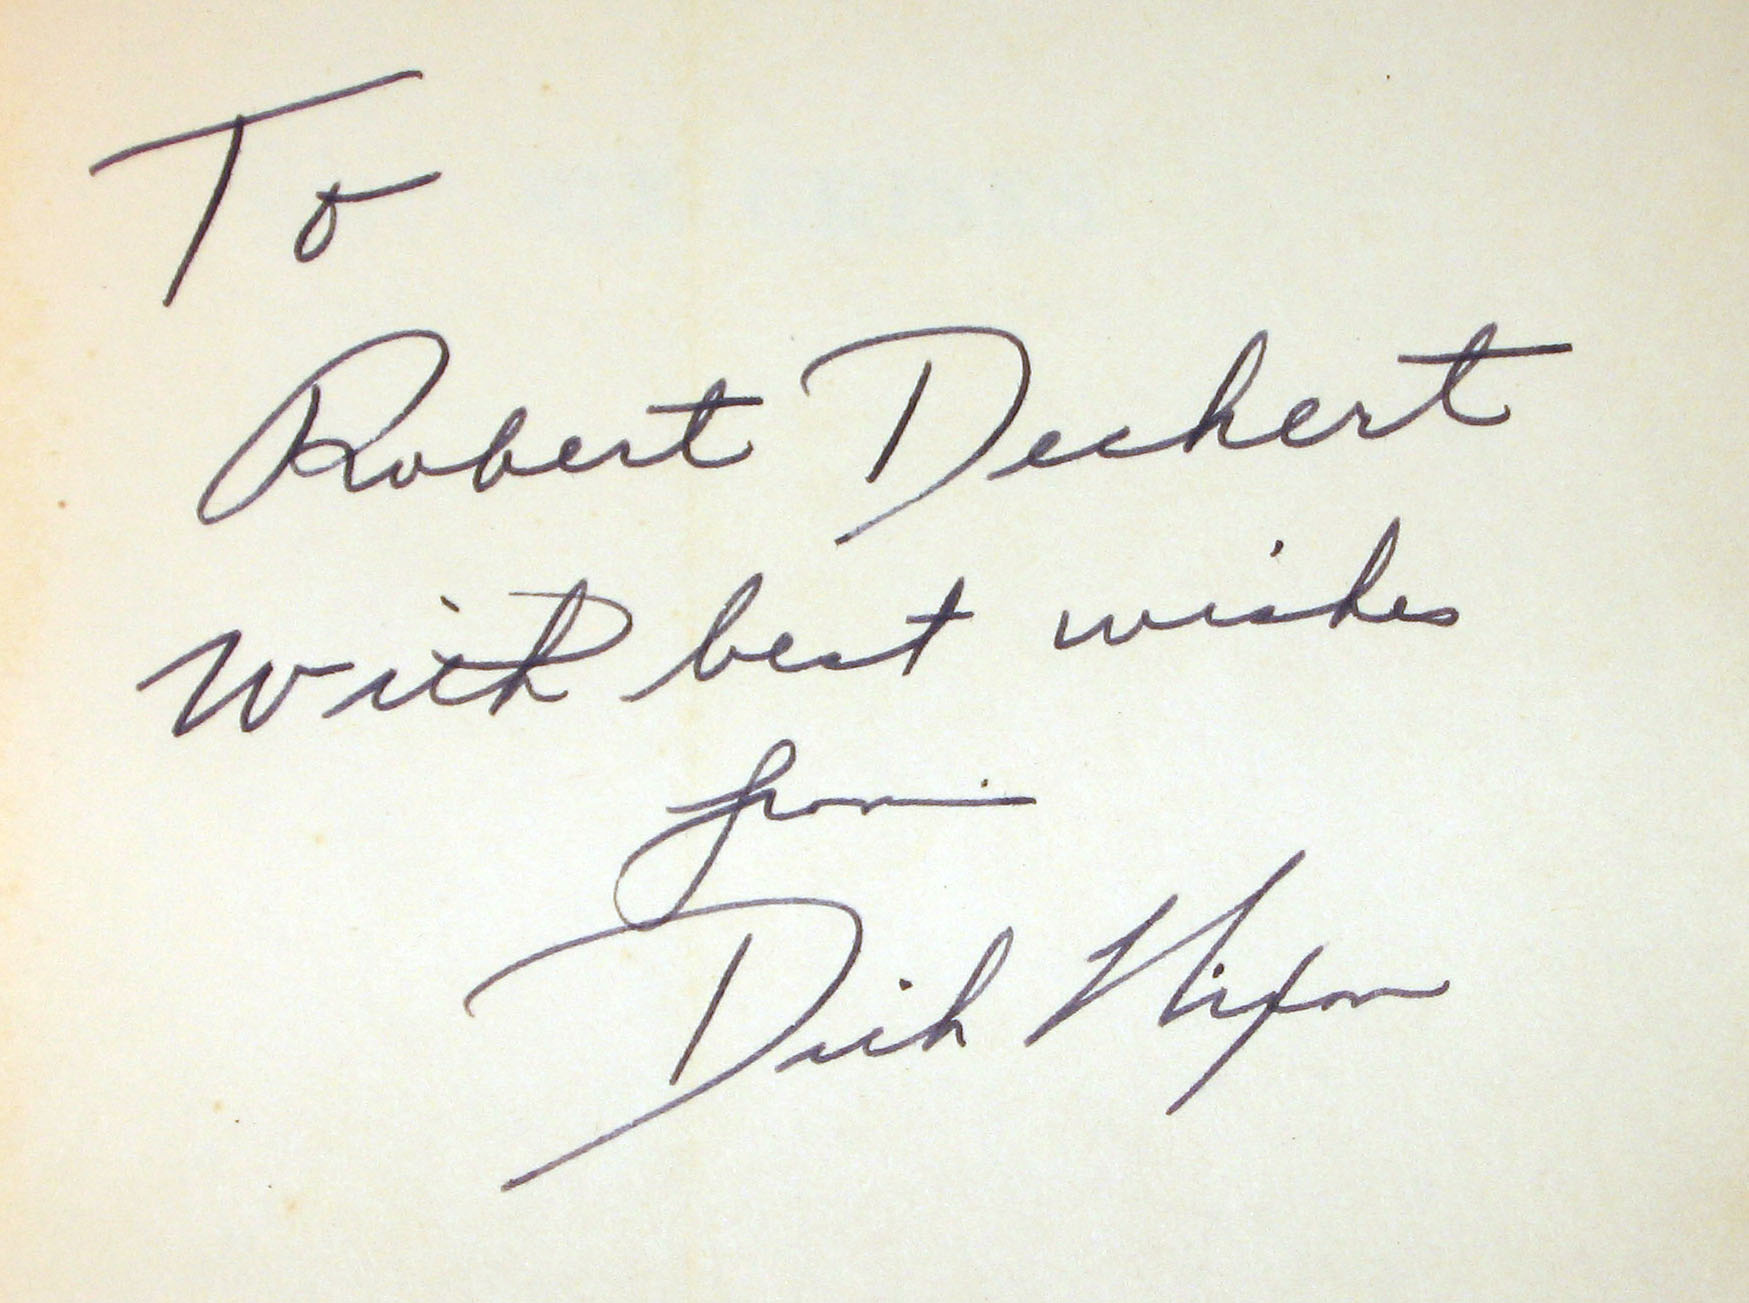 To
Robert Dechert
With best wishes
from
Dick Nixon